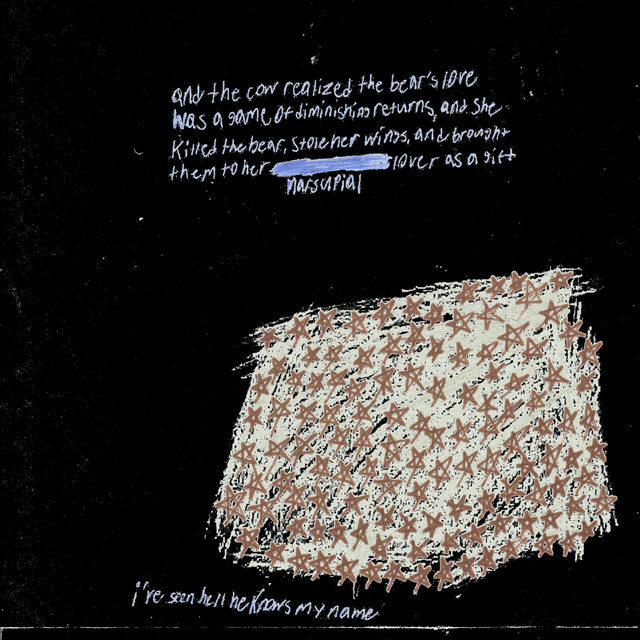 and the cow realized the bear's love
was a game of diminishing returns, and she
killed the bear, stole her wings, and brought
them to her lover as a gift
marsupial
i've seen hell he knows my name